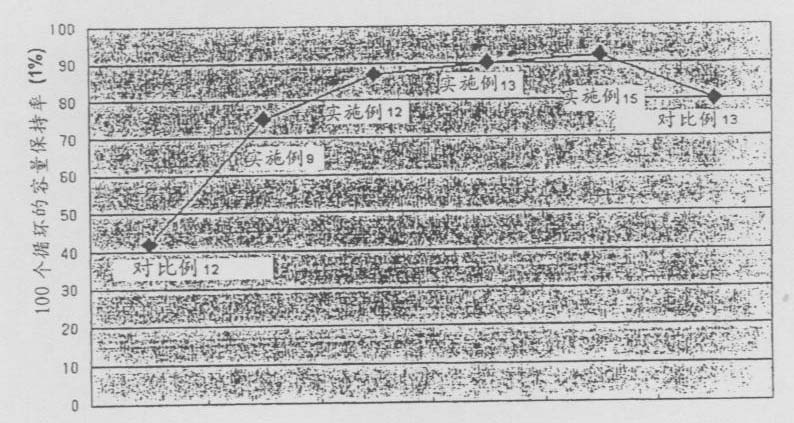 100个循环的容量保持率 (1%)
100
90
80
70
60
50
40
30
20
10
0
对比例12
实施例9
实施例12
实施例13
实施例15
对比例13